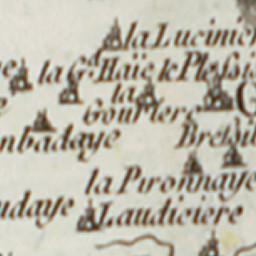 la Lucinie
la Gde Haïe le Plessis
la
Gourlere
nbadaye Bretil
la Pironnaye
udaye Laudiciere